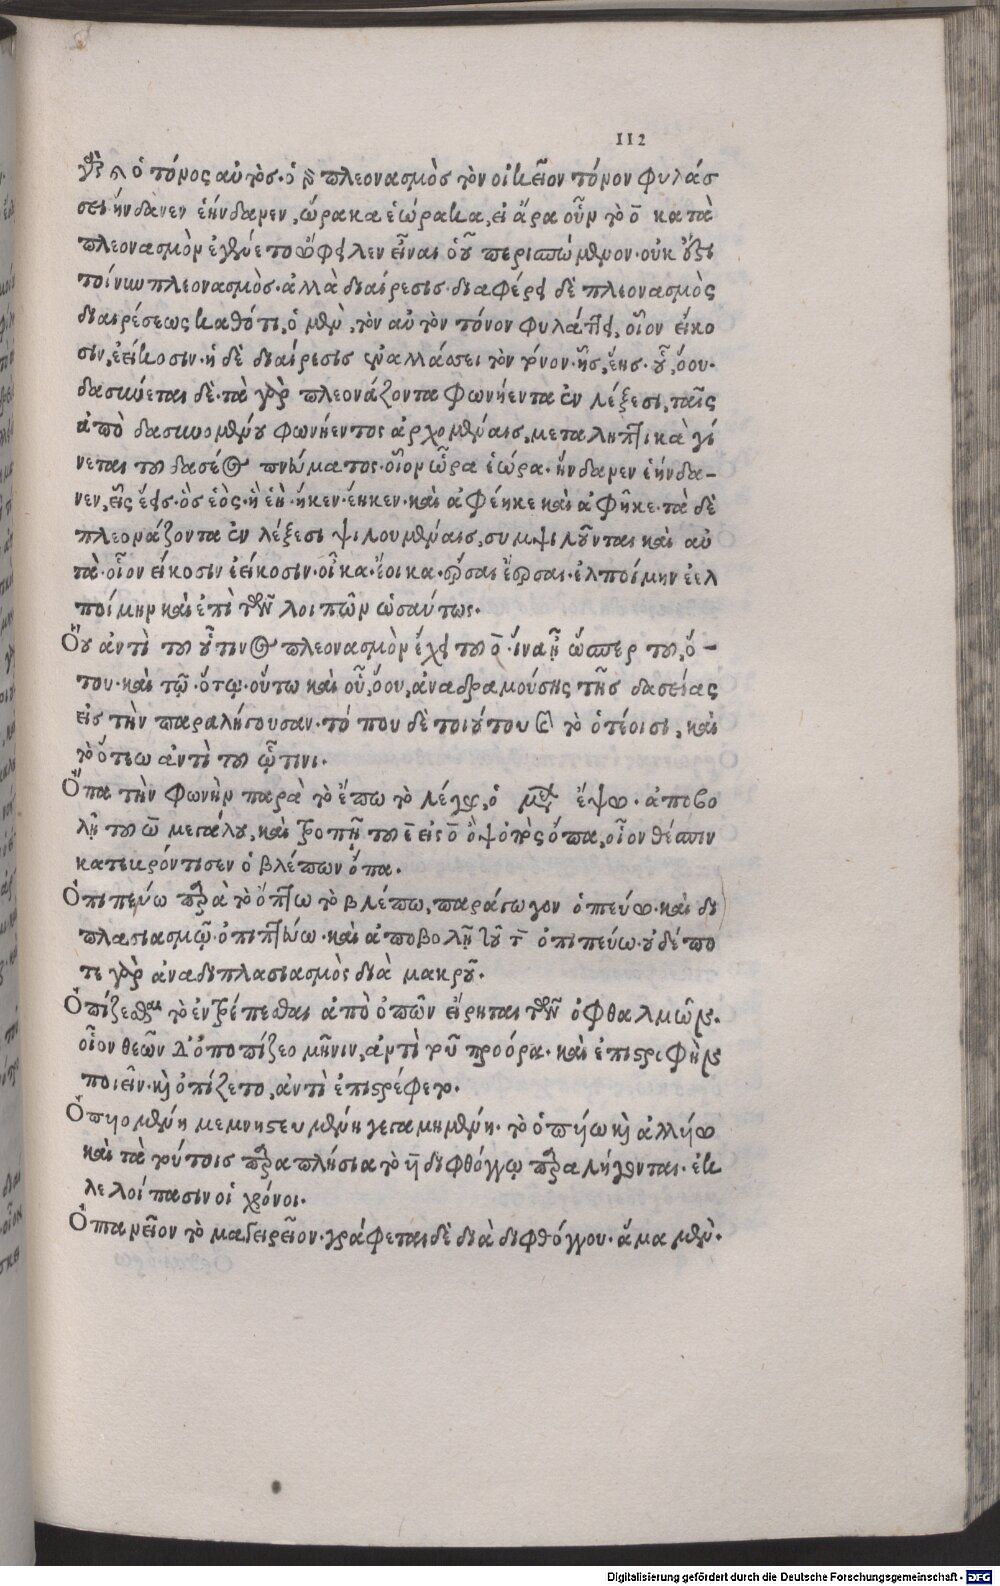 112
γὰρ ὁ τόνος αὐτὸς. ὁ δὲ πλεονασμὸς τὸν οἰκεῖον τόνον φυλάσ
σει ἥνδανεν ἑήνδανεν, ὥρακα ἑώρακα, εἰ ἄρα οὖν τὸ ο̄ κατὰ
πλεονασμὸν ἐλέγετο ὤφειλεν εἶναι ὁῦ περισπώμενον. οὐκ ἔστι
τοίνυν πλεονασμὸς. ἀλλὰ διαίρεσις. διαφέρει δὲ πλεονασμὸς
διαιρέσεως καθότι, ὁ μὲν, τὸν αὐτὸν τόνον φυλάττει, οἷον εἴκο
σιν, ἐείκοσιν. ἡ δὲ διαίρεσις ἐναλλάσσει τὸν τόνον. ἧς, ἕης. οὗ, ὅου.
δασύνεται δὲ. τὰ γὰρ πλεονάζοντα φωνήεντα ἐν λέξεσι, ταῖς
ἀπὸ δασυνομένου φωνήεντος ἀρχομέναις, μεταληπτικὰ γί
νεται τοῦ δασέος πνεύματος. οἷον ὥρα ἑώρα. ἥνδανεν ἑήνδα-
νεν, εἷς ἕεις. ὃς ἑὸς. ἣ ἑὴ. ἧκεν. ἕηκεν. καὶ ἀφέηκε καὶ ἀφῆκε. τὰ δὲ
πλεονάζοντα ἐν λέξεσι ψιλουμέναις, συμψιλοῦνται καὶ αὐ
τὰ. οἷον εἴκοσιν ἐείκοσιν. οἶκα. ἔοικα. ὦσαι ἔωσαι. ἐλποίμην ἐελ
ποίμην καὶ ἐπὶ τῶν λοιπῶν ὡσαύτως.
Ὅου ἀντὶ τοῦ οὗτινος πλεονασμὸν ἔχει τοῦ ο̄. ἵνα ᾖ ὥσπερ τοῦ, ὅ-
του. καὶ τῷ. ὅτῳ. οὕτω καὶ οὗ, ὅου, ἀναδραμούσης τῆς δασείας
εἰς τὴν παραλήγουσαν. τό που δὲ τοιούτου καὶ τὸ ὁτέοισι, καὶ
τὸ ὅτεω ἀντὶ τοῦ ᾧτινι.
Ὄπα τὴν φωνὴν παρὰ τὸ ἔπω τὸ λέγω, ὁ μέλλων ἔψω. ἀποβο
λῇ τοῦ ω̄ μεγάλου, καὶ τροπῇ τοῦ ε̄ εἰς ο̄ ὂψ ὀπὸς ὄπα, οἷον θέσπιν
κατεκρόντισεν ὁ βλέπων ὄπα.
Ὀπιπεύω παρὰ τὸ ὄπτω τὸ βλέπω, παράγωγον ὀπεύω. καὶ δι
πλασιασμῷ. ὀπιπτεύω. καὶ ἀποβολῇ τοῦ τ̄ ὀπιπεύω. οὐδέπο
τε γὰρ ἀναδιπλασιασμὸς διὰ μακροῦ.
Ὀπίζεσθαι τὸ ἐντρέπεσθαι ἀπὸ ὀπῶν εἴρηται τῶν ὀφθαλμῶν.
οἷον θεῶν δ' ὀποπίζεο μῆνιν, ἀντὶ τοῦ προόρα. καὶ ἐπιστροφὴν
ποιεῖν. καὶ ὀπίζετο, ἀντὶ ἐπιστρέφετο.
Ὀπυιομένη μεμνηστευμένη γεγαμημένη. τὸ ὀπυίω καὶ ἀλυίω
καὶ τὰ τούτοις παραπλήσια τὸ υι διφθόγγῳ παραλήγονται. ἐκ
λελοίπασιν οἱ χρόνοι.
Ὀπτανεῖον τὸ μαγειρεῖον. γράφεται δὲ διὰ διφθόγγου. ἅμα μὲν.
Digitalisierung gefördert durch die Deutsche Forschungsgemeinschaft - DFG